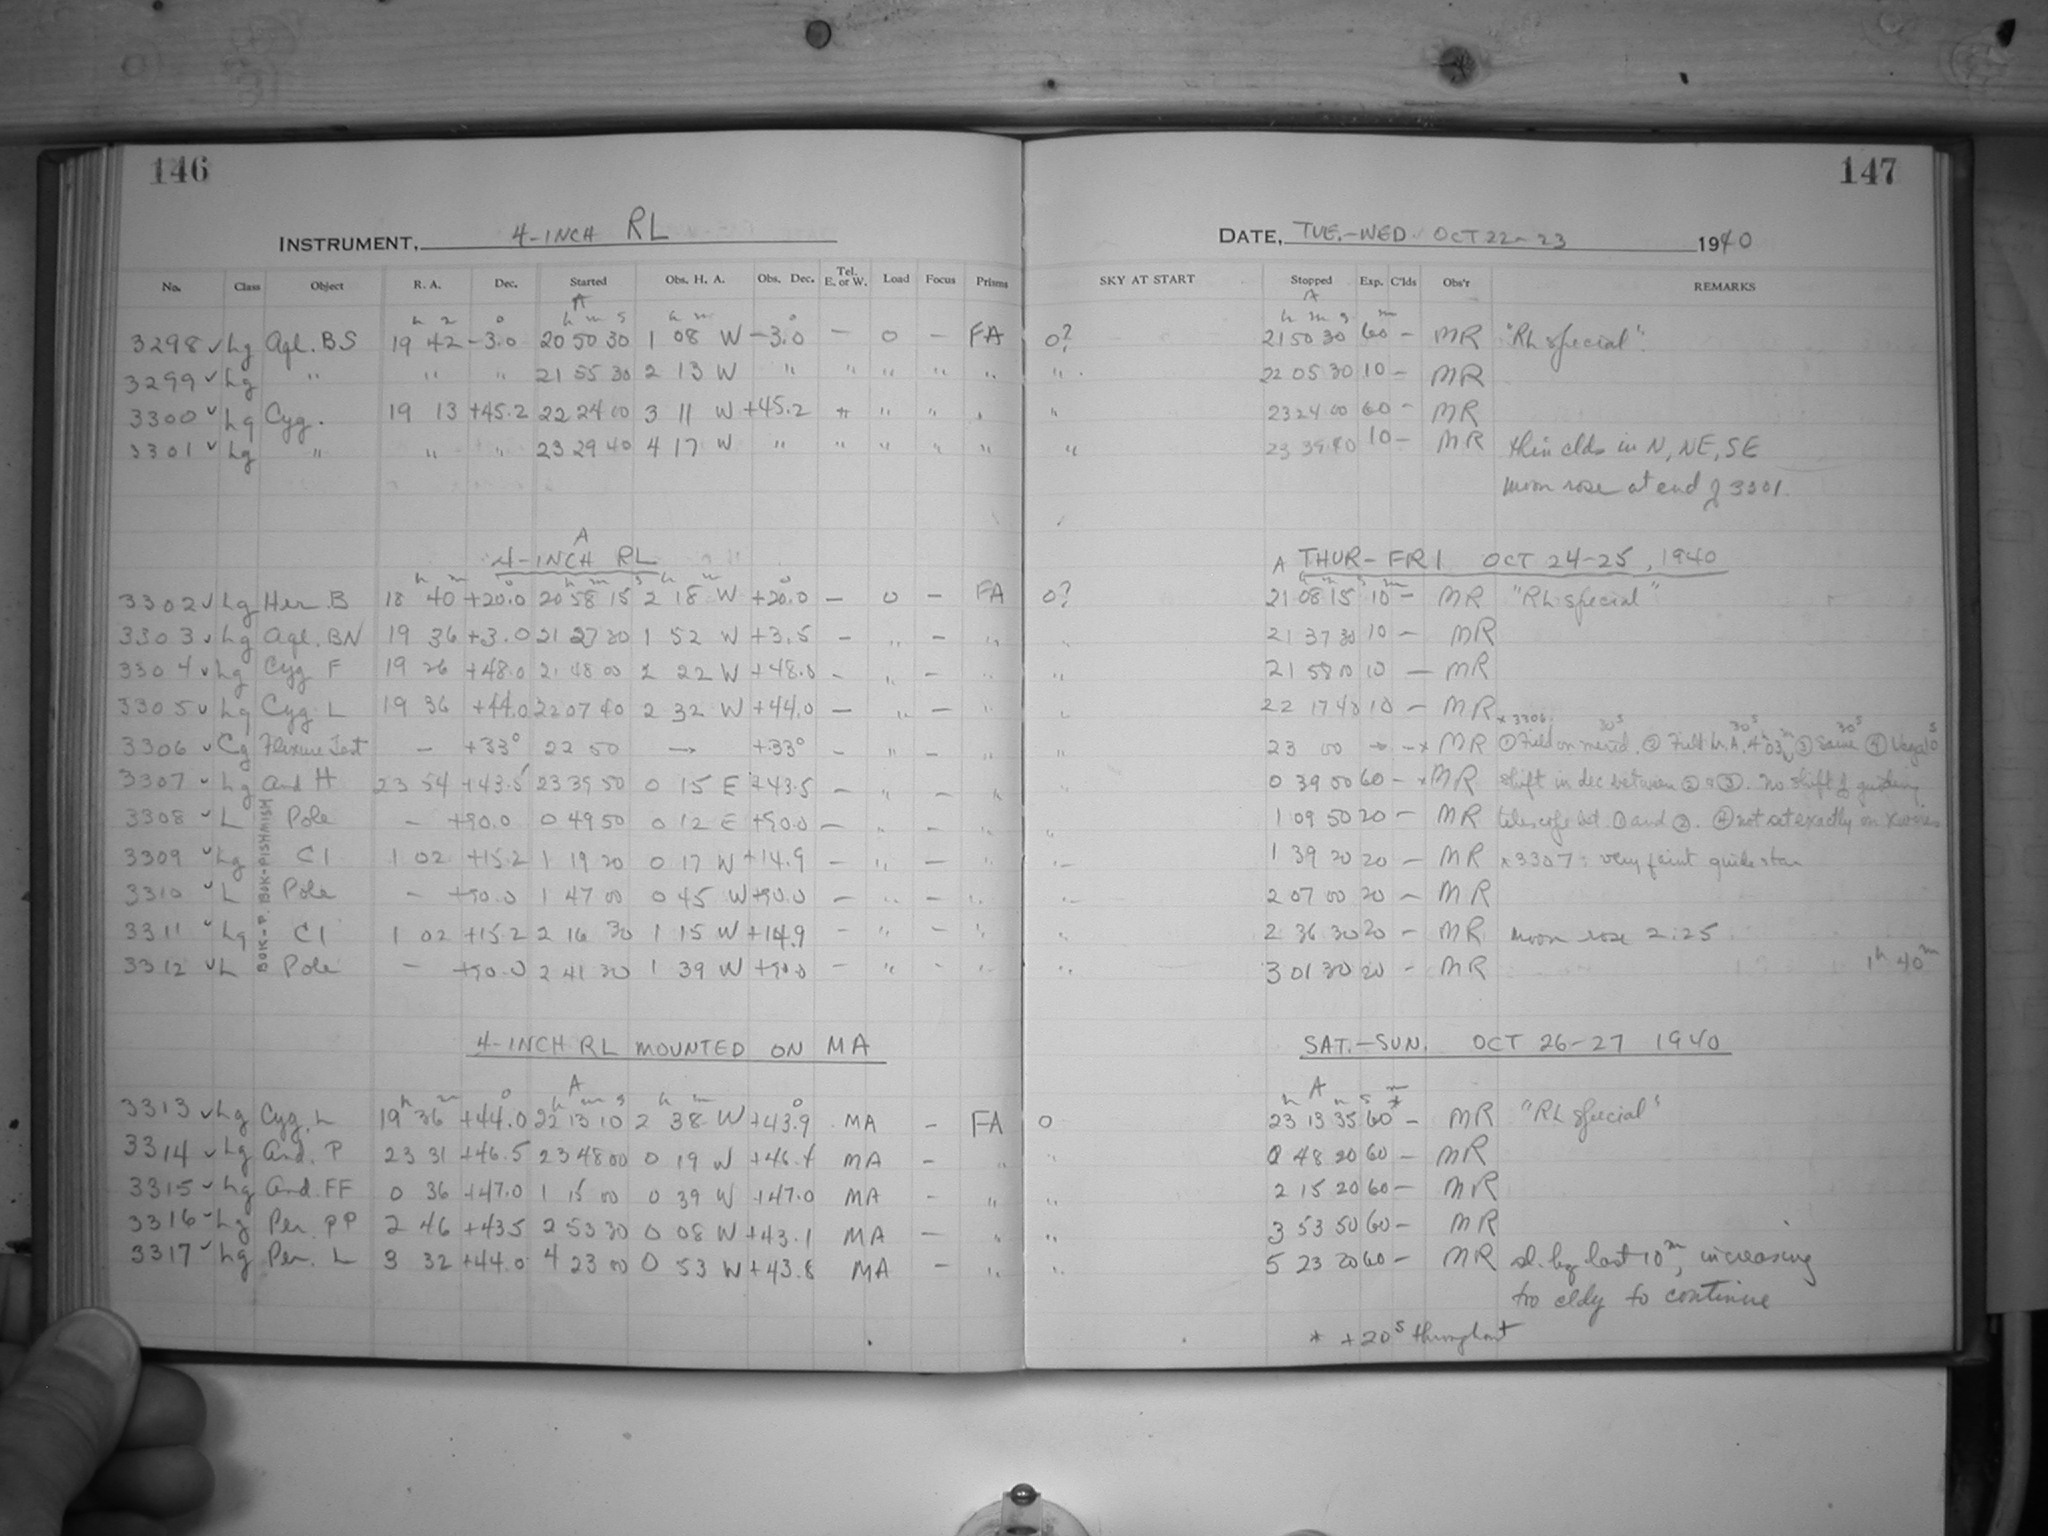 146
147
INSTRUMENT, 4-INCH RL
DATE, TUE.-WED OCT 22-23 1940
No. Class Object R. A. Dec. Started Obs. H. A. Obs. Dec. Tel. E. or W. Load Focus Prisms SKY AT START Stopped Exp. C'lds Obs'r REMARKS
A A
h m o h m s h m o h m s m
3298 ✓ Lg Aql. BS 19 42 -3.0 20 50 30 1 08 W -3.0 - 0 - FA 0? 21 50 30 60 - MR "RL special"
3299 ✓ Lg " " " 21 55 30 2 13 W " " " " " " 22 05 30 10 - MR
3300 ✓ Lg Cyg. 19 13 +45.2 22 24 00 3 11 W +45.2 " " " " " 23 24 00 60 - MR
3301 ✓ Lg " " " 23 29 40 4 17 W " " " " " " 23 39 40 10 - MR thin clds in N, NE, SE
moon rose at end of 3301.
A
4-INCH RL A THUR-FRI OCT 24-25, 1940
h m o h m s h m o h m s m
3302 ✓ Lg Her. B 18 40 +20.0 20 58 15 2 18 W +20.0 - 0 - FA 0? 21 08 15 10 - MR "RL special"
3303 ✓ Lg Aql. BN 19 36 +3.0 21 27 30 1 52 W +3.5 - " - " " 21 37 30 10 - MR
3304 ✓ Lg Cyg F 19 26 +48.0 21 48 00 2 22 W +48.0 - " - " " 21 58 00 10 - MR
3305 ✓ Lg Cyg. L 19 36 +44.0 22 07 40 2 32 W +44.0 - " - " " 22 17 40 10 - MR
x 3306 30s 30s 30s s
3306 ✓ Cg Flexure Test - +33° 22 50 - +33° - " - " " 23 00 - -x MR ① Field on merid. ② Field H.A. 4h 03m ③ Same ④ Vega 10
3307 ✓ Lg And H 23 54 +43.5 23 39 50 0 15 E +43.5 - " - " " 0 39 00 60 - x MR shift in dec between ② & ③. No shift of guiding
3308 ✓ L Pole - +90.0 0 49 50 0 12 E +90.0 - " - " " 1 09 50 20 - MR telescope bet ① and ②. ④ not set exactly on
3309 ✓ Lg C1 1 02 +15.2 1 19 20 0 17 W +14.9 - " - " " 1 39 20 20 - MR x 3307: very faint guide star
3310 ✓ L Pole - +90.0 1 47 00 0 45 W +90.0 - " - " " 2 07 00 20 - MR
3311 ✓ Lg C1 1 02 +15.2 2 16 30 1 15 W +14.9 - " - " " 2 36 30 20 - MR moon rose 2:25
3312 ✓ L Pole - +90.0 2 41 30 1 39 W +90.0 - " - " " 3 01 30 20 - MR 1h 40m
BOK-P. BOK-PISHMISH
4-INCH RL MOUNTED ON MA SAT.-SUN. OCT 26-27 1940
A A
h m o h m s h m o h m s m
3313 ✓ Lg Cyg. L 19 36 +44.0 22 13 10 2 38 W +43.9 MA - FA 0 23 13 35 60* - MR "RL special"
3314 ✓ Lg And. P 23 31 +46.5 23 48 00 0 19 W +46.4 MA - " " 0 48 20 60 - MR
3315 ✓ Lg And. FF 0 36 +47.0 1 15 00 0 39 W +47.0 MA - " " 2 15 20 60 - MR
3316 ✓ Lg Per. PP 2 46 +43.5 2 53 30 0 08 W +43.1 MA - " " 3 53 50 60 - MR
3317 ✓ Lg Per. L 3 32 +44.0 4 23 00 0 53 W +43.8 MA - " " 5 23 20 60 - MR sl. hzy last 10m, increasing
too cldy to continue
* +20s throughout